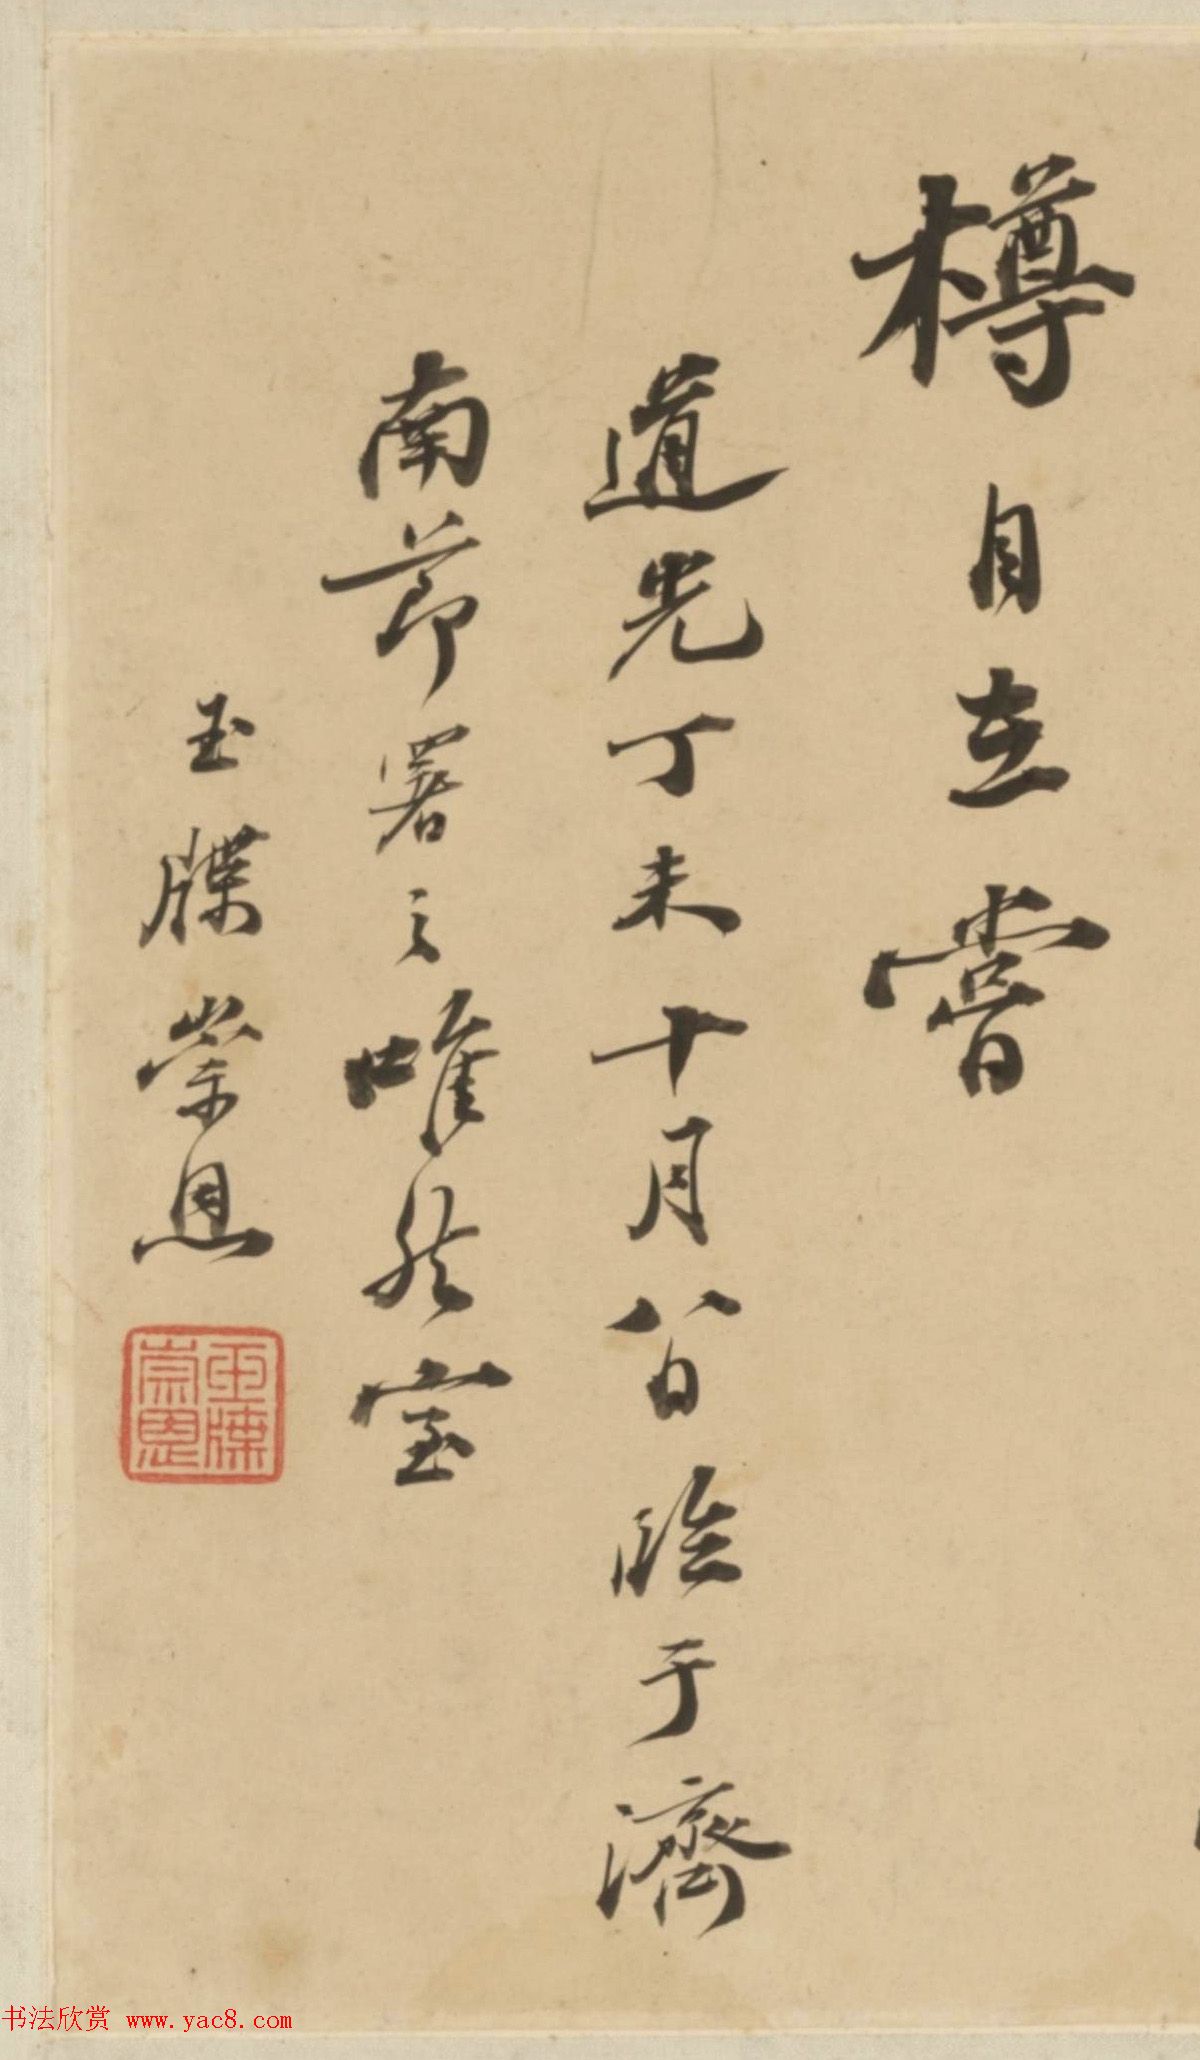 樽自在嘗
道光丁未十月八日臨于濟
南節署之唯然室
玉牒崇恩
玉牒
崇恩
书法欣赏 www.yac8.com